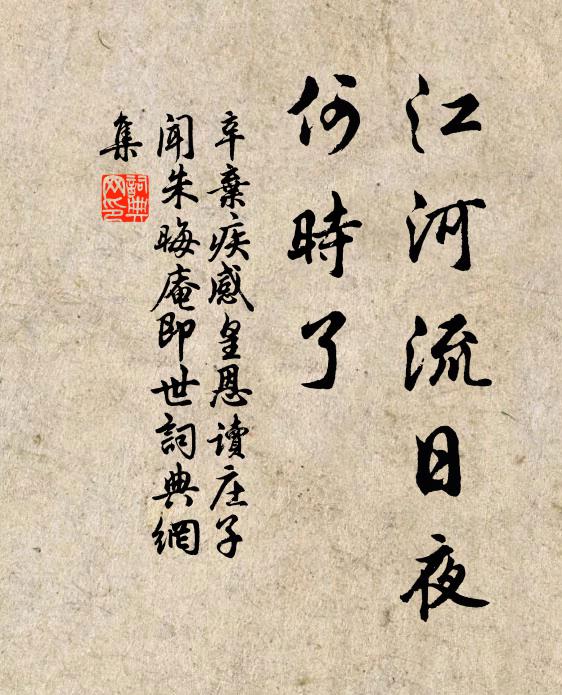 江河流日夜
何時了
辛棄疾感皇恩讀庄子
聞朱晦庵即世詞典網
集
詞典
网印